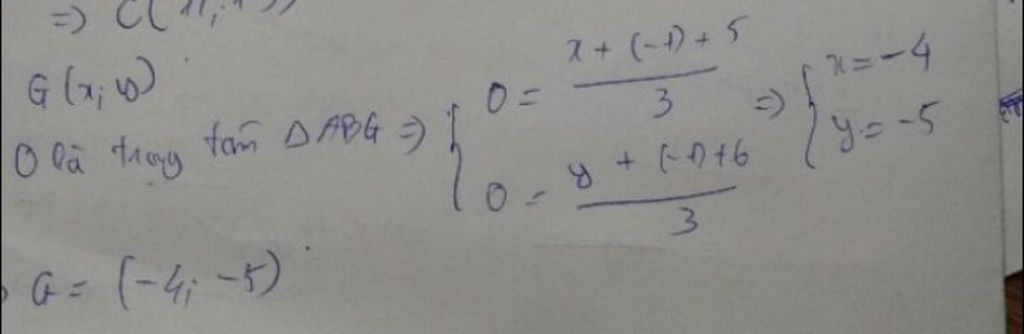 => C(
G(x; y)
O là trọng tâm ΔABG => { 0 = (x + (-1) + 5)/3 => { x = -4
0 = (y + (-1) + 6)/3 y = -5
G = (-4; -5)